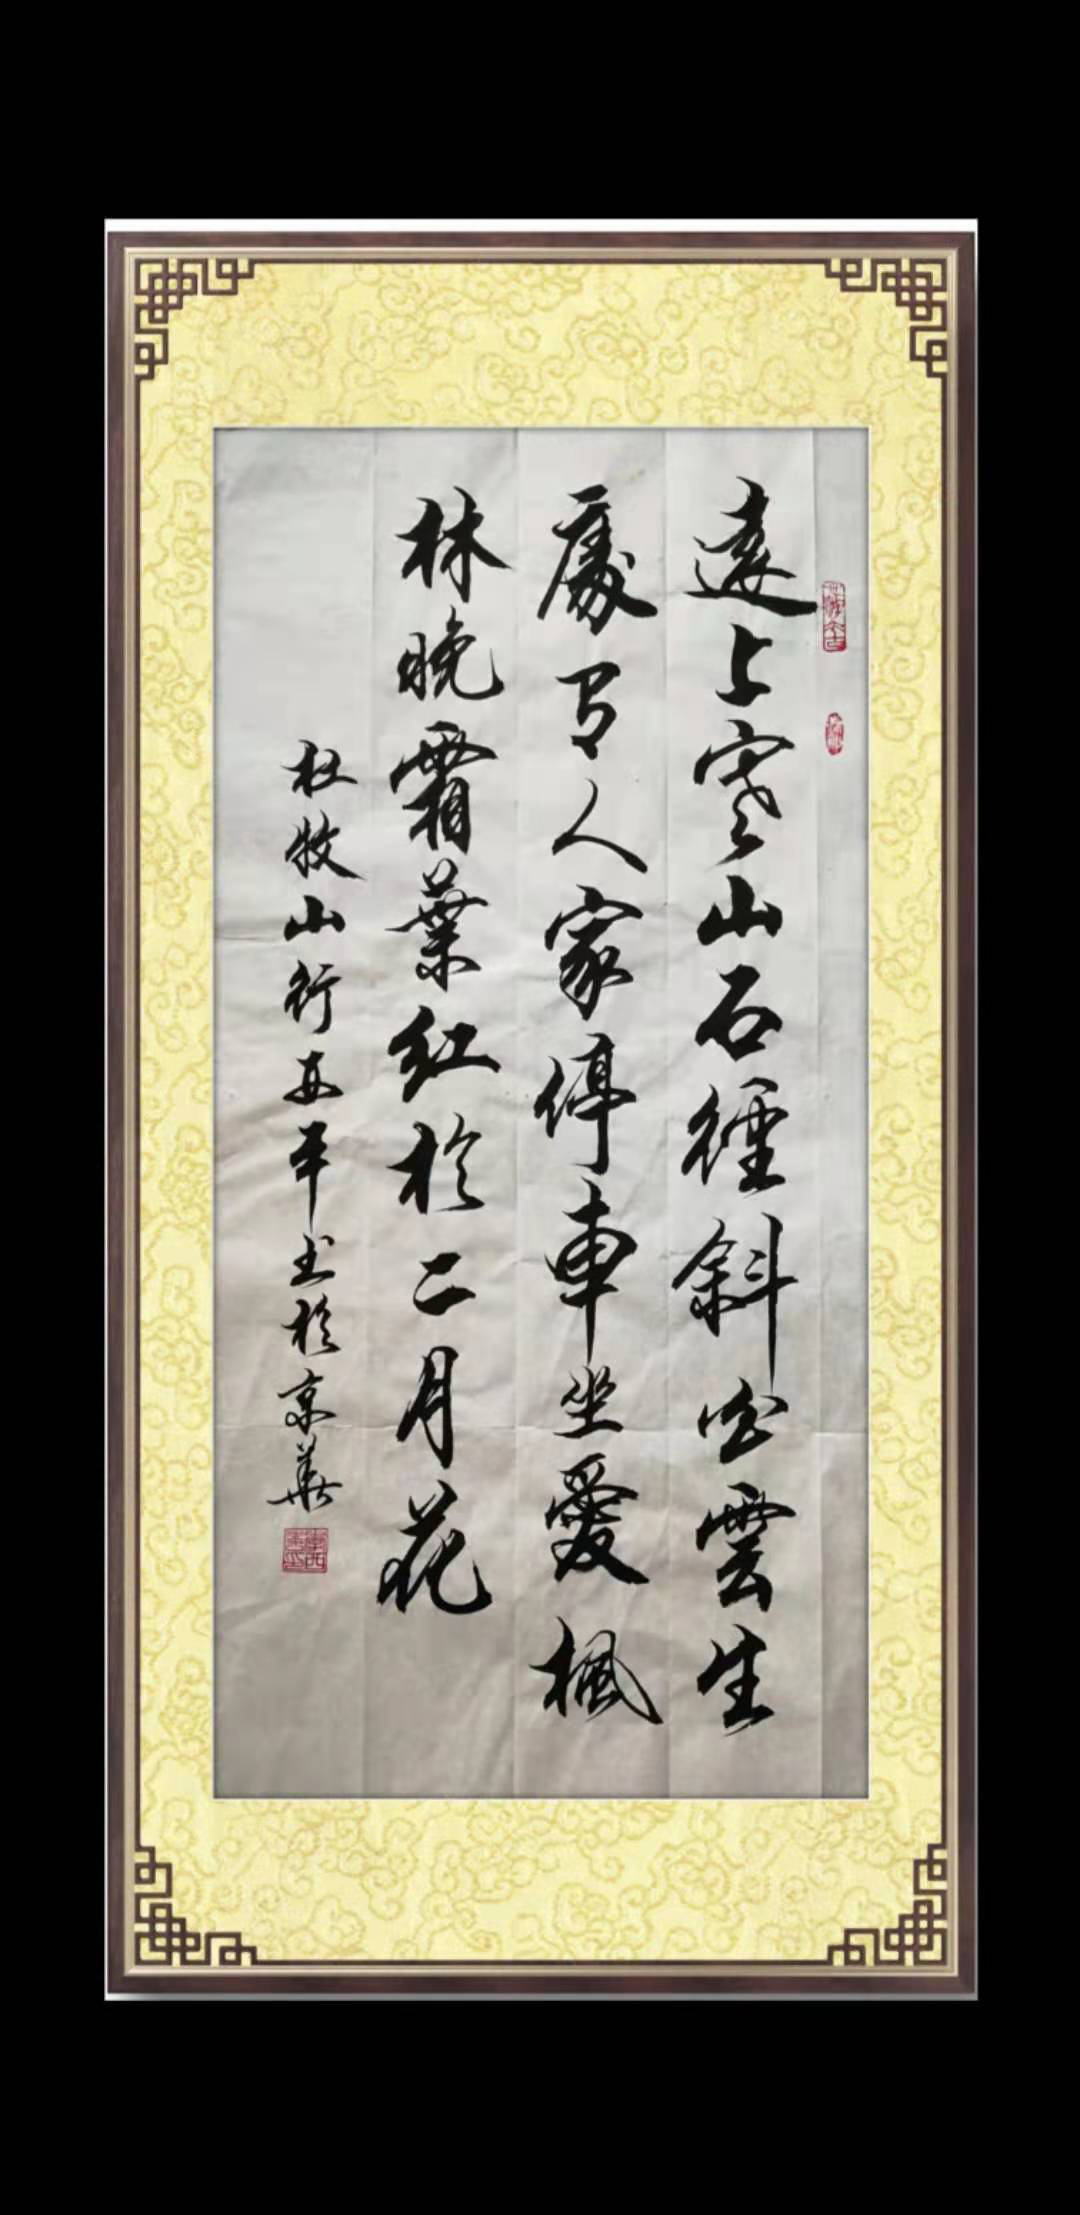 遠上寒山石徑斜白雲生
處有人家停車坐愛楓
林晚霜葉紅於二月花
杜牧山行西平書於京華